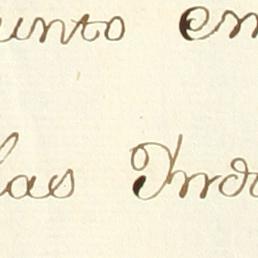 unto en
las Indi